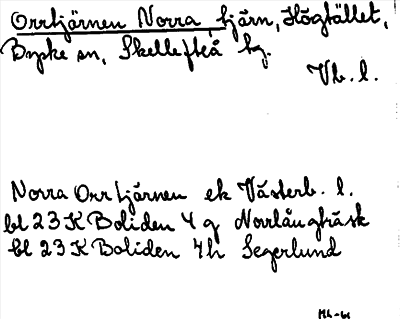 Orrtjärnen Norra, tjärn, Högfället,
Byske sn, Skellefteå tg.
Vb. l.
Norra Orrtjärnen ek Västerb. l.
bl 23 K Boliden 4 g Norrlångträsk
bl 23 K Boliden 4h Segerlund